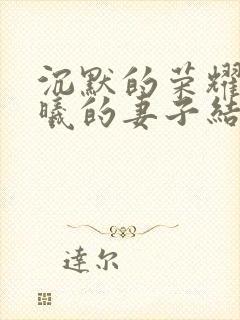 沉默的荣耀
曦的妻子结
達尔